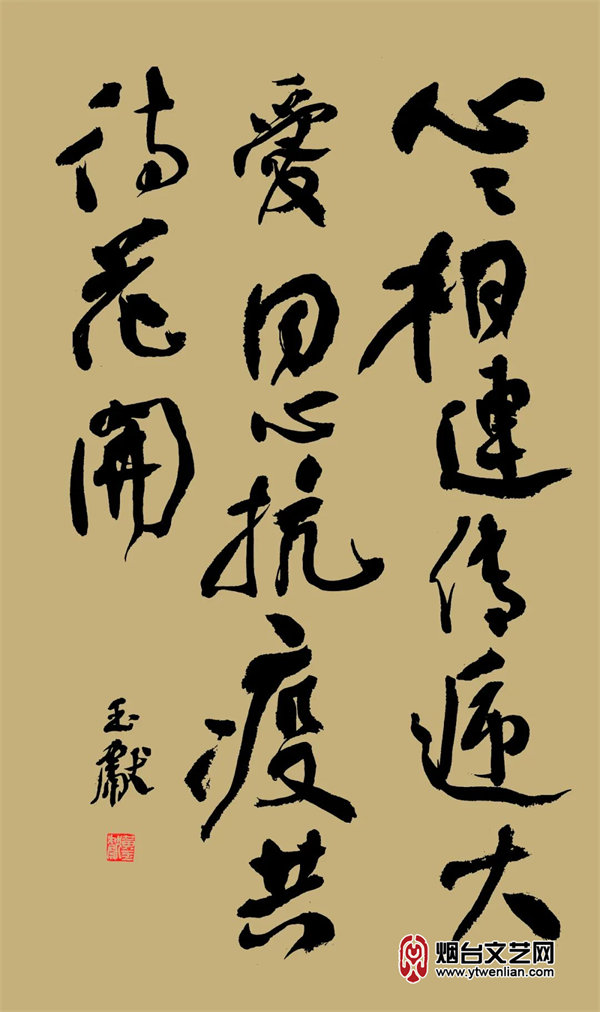 心心相連传递大
愛同心抗疫共
待花開
玉獻
烟台文艺网
www.ytwenlian.com